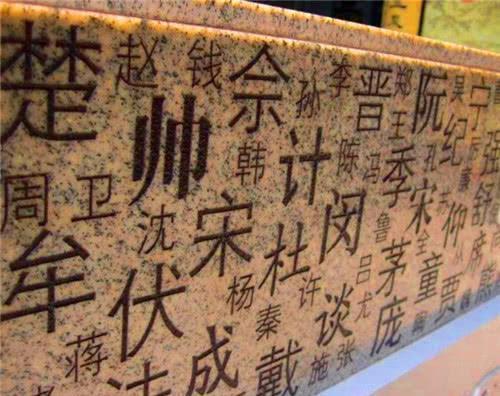 楚 赵 钱 佘 孙 李 晋 郑 阮 吴 宁
帅 韩 计 陈 冯 王 季 孔 纪 强
周 卫 沈 宋 杜 闵 鲁 宋 仰 舒
牟 伏 杨 许 谈 吕 尤 茅 童 贾 席
蒋 成 秦 戴 施 张 庞